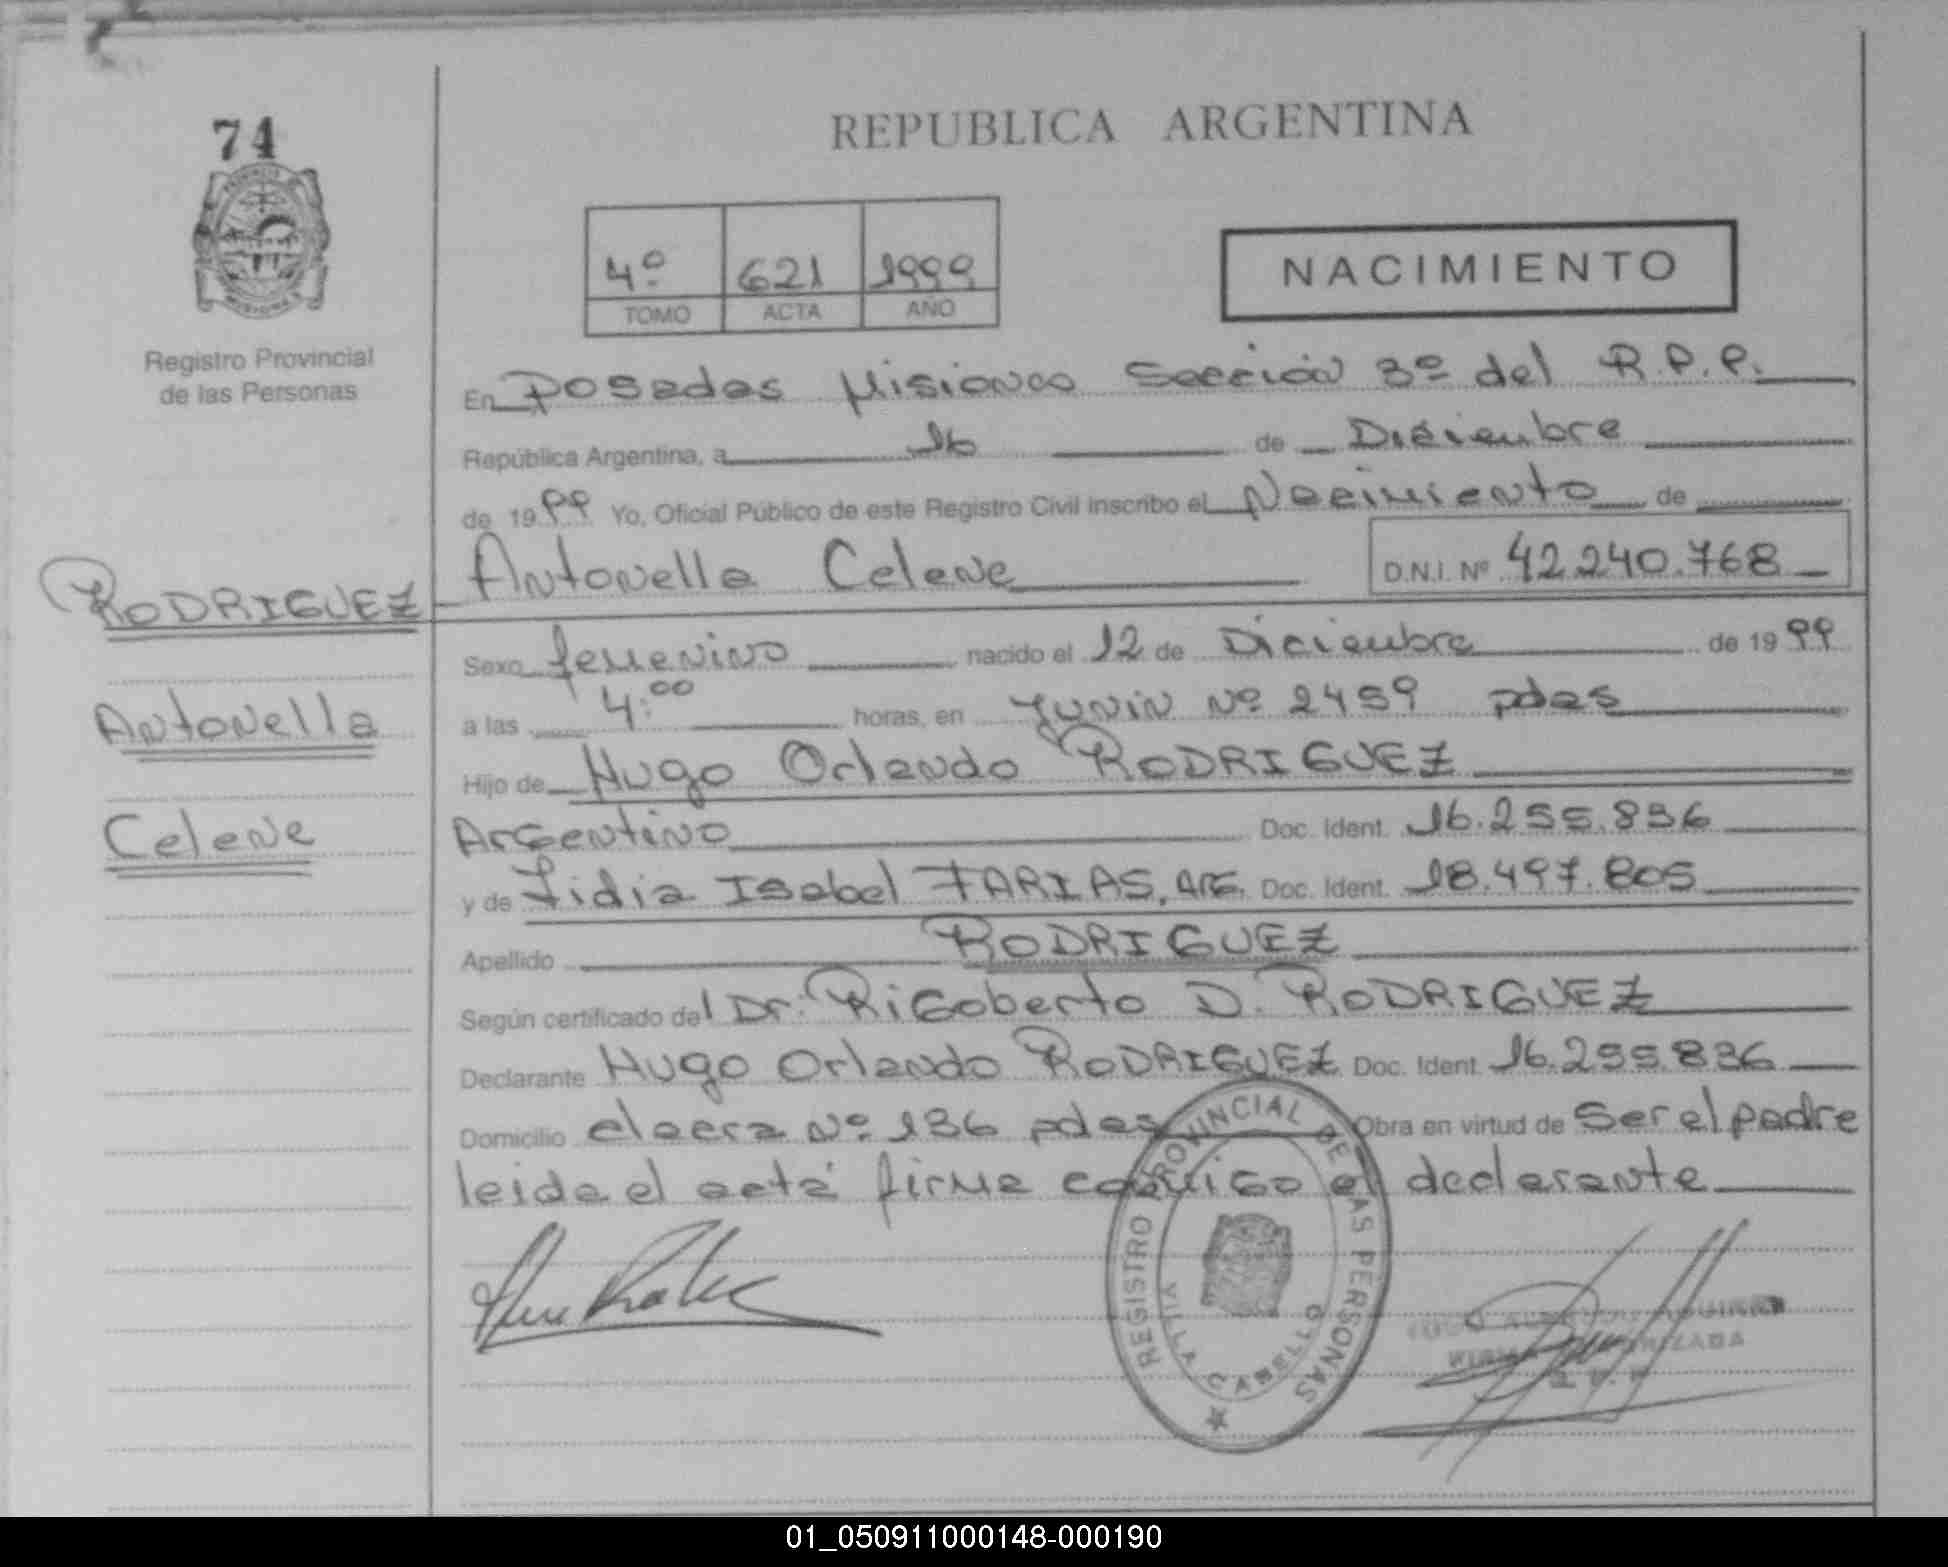 74
REPUBLICA ARGENTINA
4º 621 1999
TOMO ACTA AÑO
NACIMIENTO
Registro Provincial
de las Personas
En Posadas Misiones Sección 3º del R.P.P.
República Argentina, a 16 de Diciembre
de 1999 Yo, Oficial Público de este Registro Civil inscribo el Nacimiento de
Antonella Celene D.N.I. Nº 42.240.768
RODRIGUEZ
Antonella
Celene
Sexo femenino nacido el 12 de Diciembre de 1999
a las 4:00 horas, en Junin Nº 2459 pdas
Hijo de Hugo Orlando RODRIGUEZ
Argentino Doc. Ident. 16.255.836
y de Lidia Isabel FARIAS, ARG. Doc. Ident. 18.497.805
Apellido RODRIGUEZ
Según certificado del Dr: Rigoberto D. RODRIGUEZ
Declarante Hugo Orlando RODRIGUEZ Doc. Ident 16.255.836
Domicilio Nº 136 pdas Obra en virtud de Ser el padre
leida el acta firma conmigo el declarante
REGISTRO PROVINCIAL DE LAS PERSONAS
VILLA CABELLO
AGUIRRE
FIRMA AUTORIZADA
01_050911000148-000190